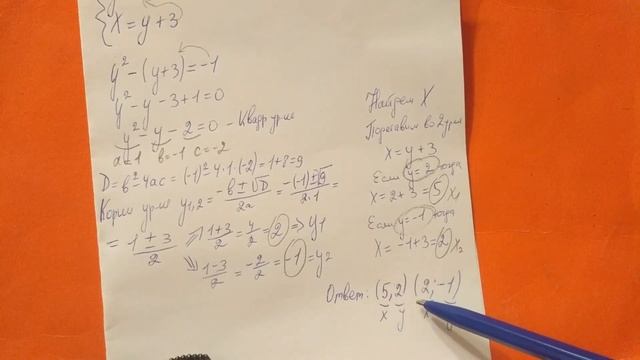 { x = y + 3
y² - (y+3) = -1
y² - y - 3 + 1 = 0
y² - y - 2 = 0 - Квадр ур-ие
a=1 b=-1 c=-2
D = b² - 4ac = (-1)² - 4·1·(-2) = 1+8 = 9
Корни ур-ие y1,2 = -b±√D / 2a = -(-1)±√9 / 2·1 =
= 1±3 / 2 ⇒ 1+3 / 2 = 4/2 = 2 ⇒ y1
⇒ 1-3 / 2 = -2/2 = -1 = y2
Найдем X
Подставим во 2 ур-ие
x = y + 3
Если y=2 тогда
x = 2+3 = 5 x1
Если y=-1 тогда
x = -1+3 = 2 x2
Ответ: (5; 2) (2; -1)
x y x y